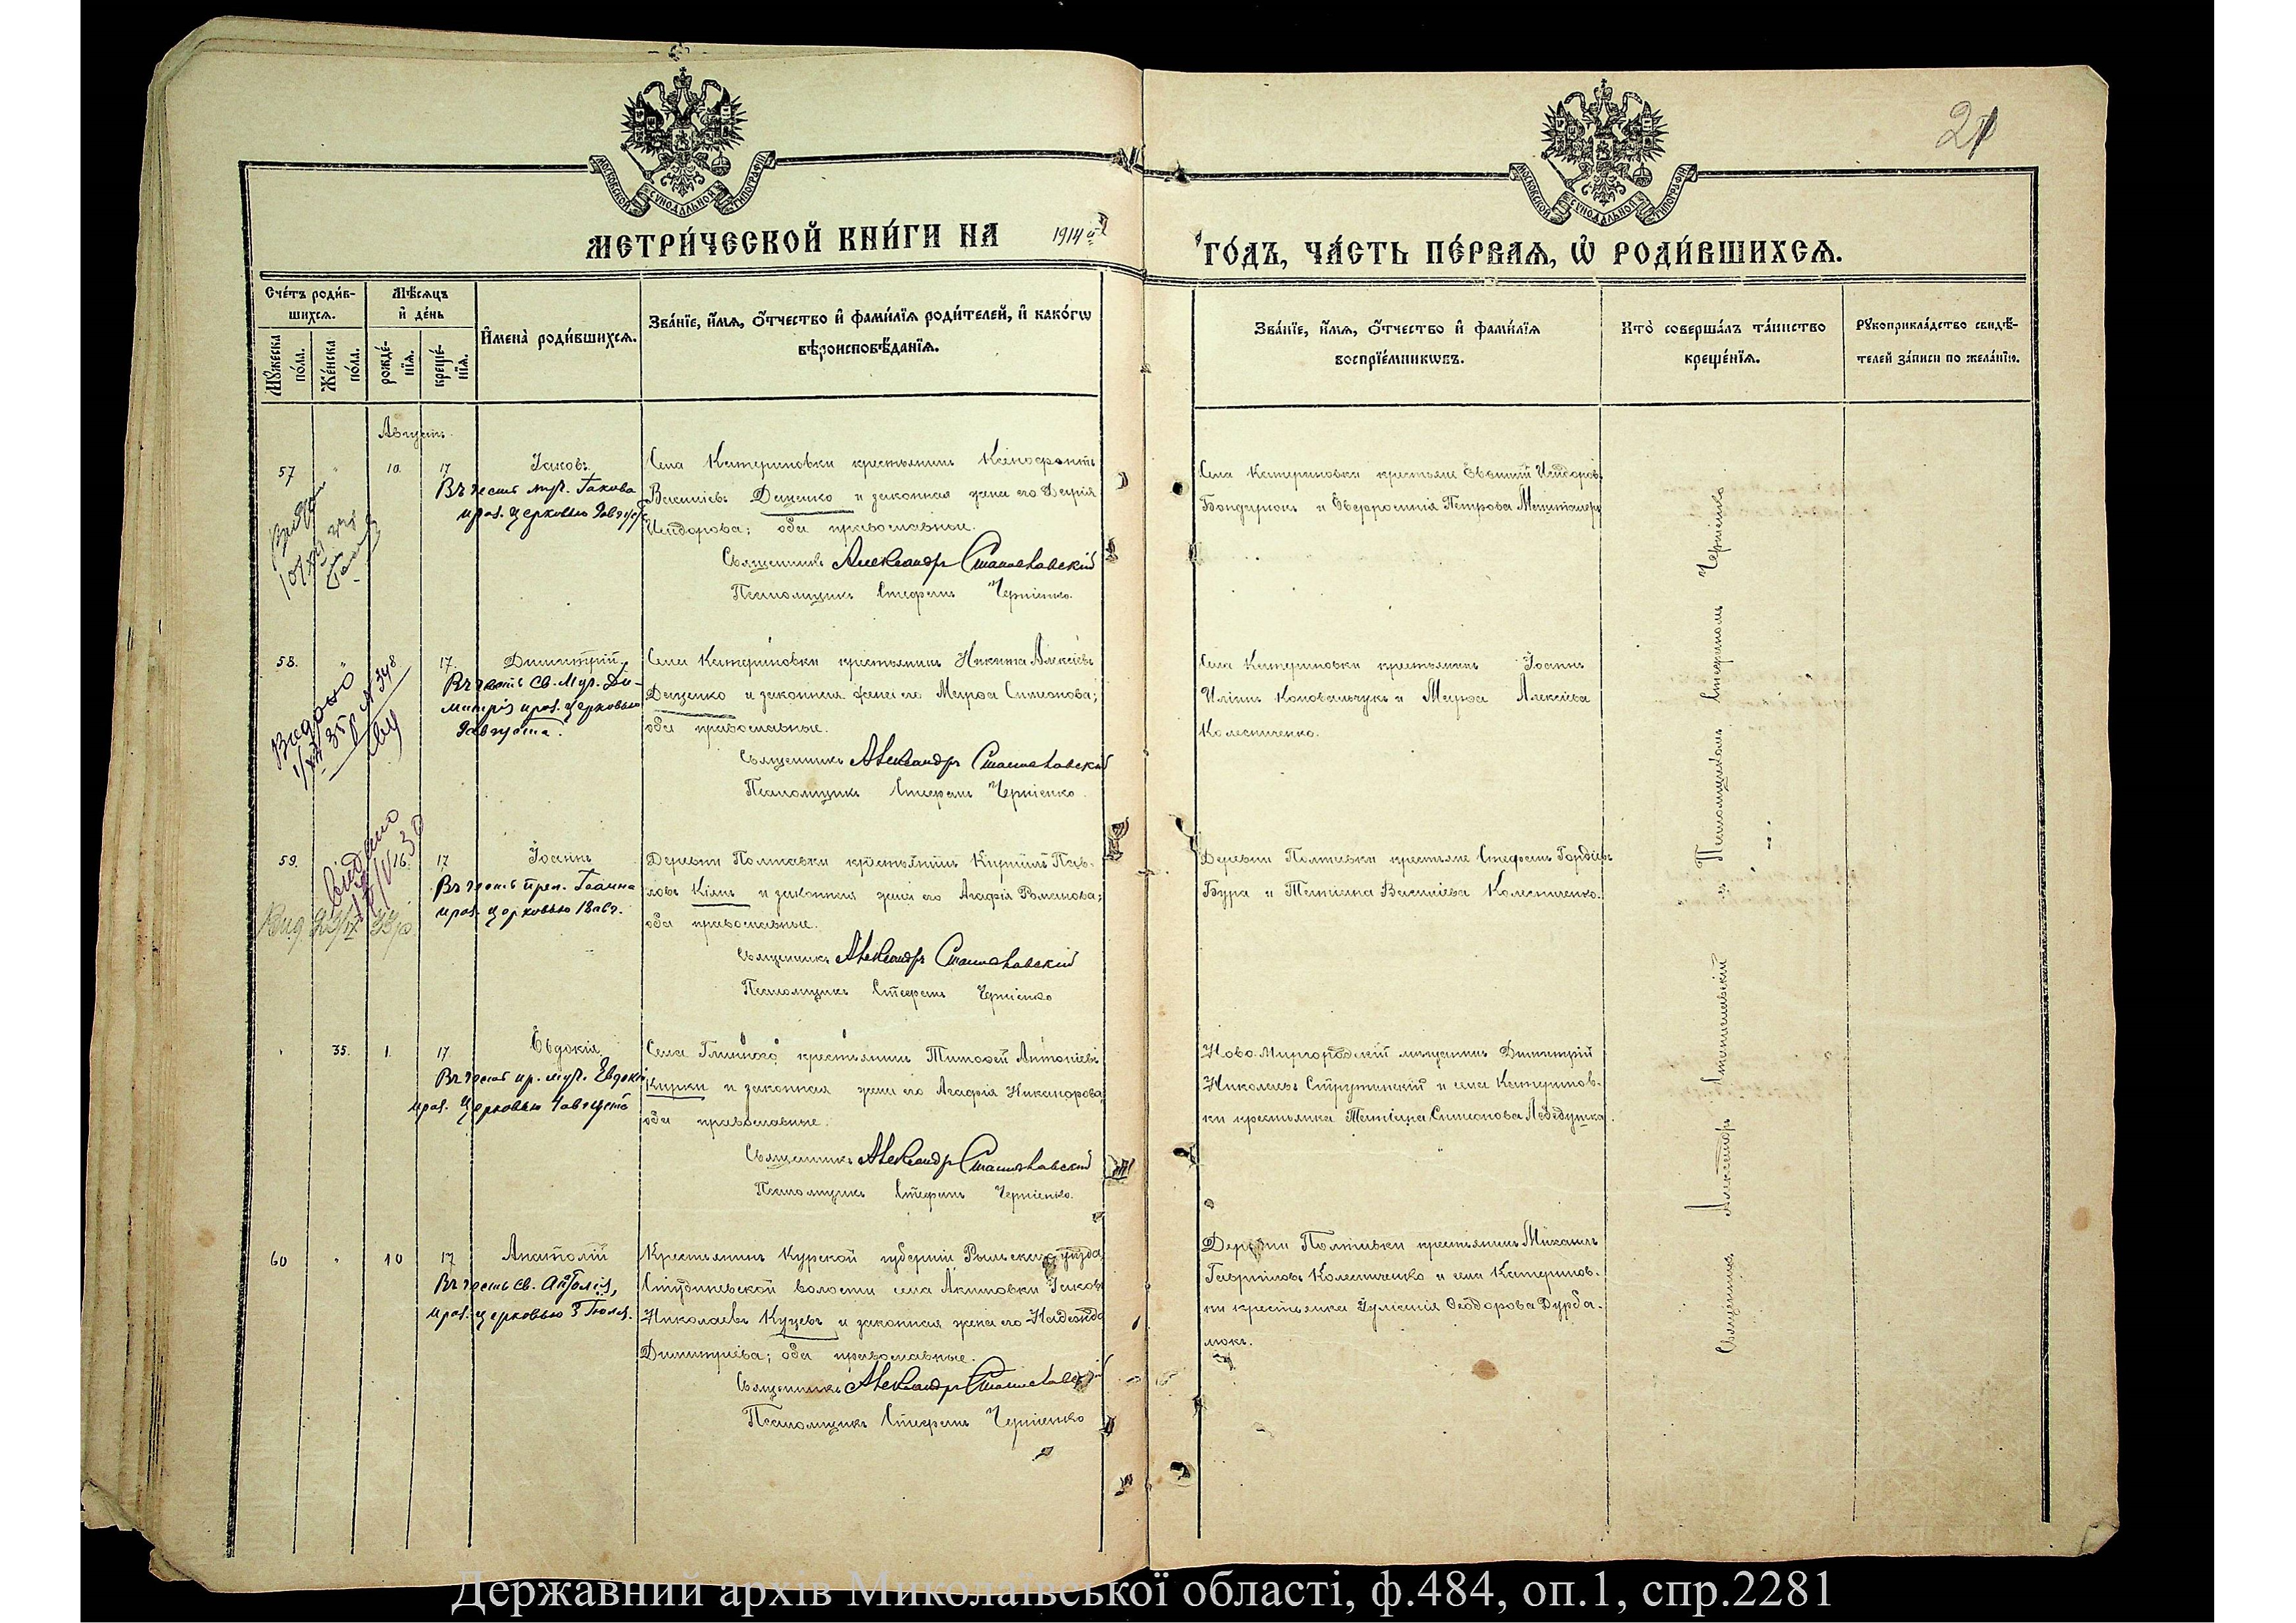 21
МОСКОВСКОЙ СѴНОДАЛЬНОЙ ТИПОГРАФІИ
МОСКОВСКОЙ СѴНОДАЛЬНОЙ ТИПОГРАФІИ
МЕТРИ́ЧЕСКОЙ КНИ́ГИ НА 1914 й
ГО́ДЪ, ЧА́СТЬ ПЕ́РВАЯ, Ѡ҆ РОДИ́ВШИХСЯ.
Сче́тъ роди́в-
шихся.
Мꙋ́жеска по́ла.
Же́нска по́ла.
Мѣ́сяцъ
и҆ де́нь
рожде́-
нїя.
креще́-
нїя.
И҆мена̀ роди́вшихся.
Зва́нїе, и҆́мя, ѻ҆́тчество и҆ фами́лїя роди́телей, и҆ како́гѡ
вѣроисповѣ́данїя.
Зва́нїе, и҆́мя, ѻ҆́тчество и҆ фами́лїя
воспрїе́мникѡвъ.
Кто̀ соверша́лъ та́инство
креще́нїя.
Рꙋкоприкла́дство свидѣ́-
телей за́писи по жела́нїю.
Августъ
57 " 10 17 Іаковъ
Въ честь муч. Іакова
праз. церковью 9 августа
Села Катериновки крестьянинъ Ксенофонтъ
Василіевъ Даценко и законная жена его Дарія
Исидорова; оба православные.
Священникъ Александръ Станиславскій
Псаломщикъ Стефанъ Черніенко.
Села Катериновки крестьяне Евѳимій Исидоровъ
Бондарюкъ и Евфросинія Петрова
58. " 17. Димитрій
Въ честь св. Муч. Ди-
митрія праз. церковью
9 августа.
Села Катериновки крестьянинъ Никита Алексіевъ
Даценко и законная жена его Марѳа Симеонова;
оба православные.
Священникъ Александръ Станиславскій
Псаломщикъ Стефанъ Черніенко.
Села Катериновки крестьянинъ Іоаннъ
Иліинъ Коновальчукъ и Марѳа Алексіева
Колесниченко.
Видано
1/XII 35 р N 348
59. 16. 17 Іоаннъ
Въ честь преп. Іоанна
праз. церковью 18 авг.
Деревни Полтавки крестьянинъ Кириллъ Пав-
ловъ Кіяпъ и законная жена его Агафія Романова;
оба православные.
Священникъ Александръ Станиславскій
Псаломщикъ Стефанъ Черніенко
Деревни Полтавки крестьяне Стефанъ Гордіевъ
Бура и Татіана Василіева Колесниченко.
Видано
" 35. 1. 17. Евдокія
Въ честь пр. муч. Евдокіи
праз. церковью 4 августа
Села Глинного крестьянинъ Тимоѳей Антоніевъ
Кирки и законная жена его Агафія Никанорова;
оба православные.
Священникъ Александръ Станиславскій
Псаломщикъ Стефанъ Черніенко.
Ново-Миргородскій мещанинъ Димитрій
Николаевъ Струтинскій и села Катеринов-
ки крестьянка Татіана Симеонова Лебедушка.
60 " 10 17 Анатолій
Въ честь св. Анатолія,
праз. церковью 3 Іюля.
Крестьянинъ Курской губерніи Рыльскаго уѣзда,
волости села Акимовки Іаковъ
Николаевъ Куцевъ и законная жена его Надежда
Димитріева; оба православные.
Священникъ Александръ Станиславскій
Псаломщикъ Стефанъ Черніенко
Деревни Полтавки крестьянинъ Михаилъ
Гавріиловъ Колесниченко и села Катеринов-
ки крестьянка Іуліанія Ѳеодорова Дурба-
люкъ.
Священникъ Александръ Станиславскій съ Псаломщикомъ Стефаномъ Черніенко
Державний архів Миколаївської області, ф.484, оп.1, спр.2281